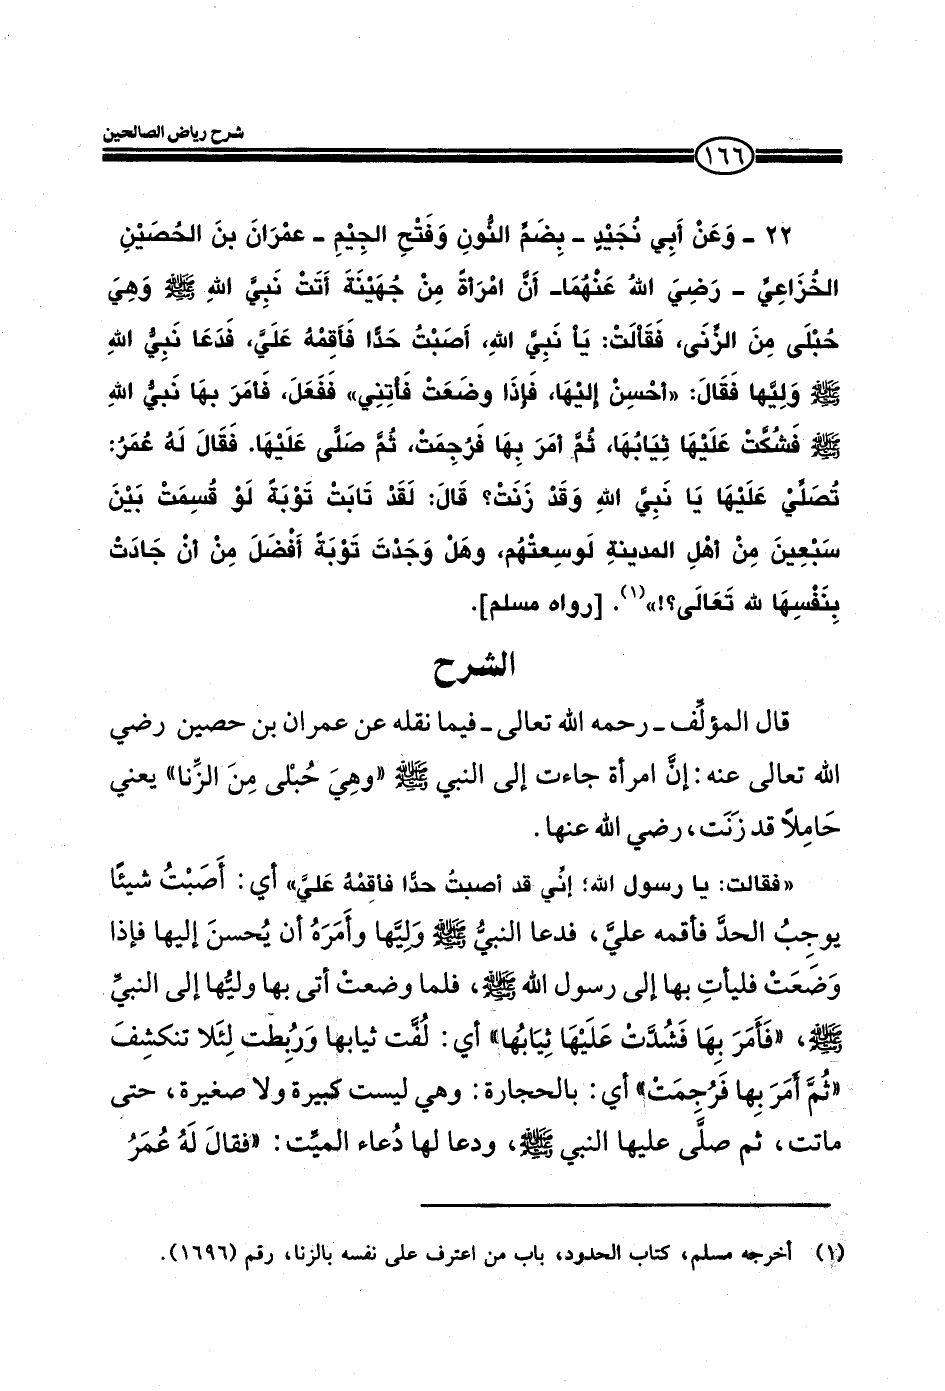 شرح رياض الصالحين
١٦٦
٢٢ - وَعَنْ أَبِي نُجَيْدٍ - بِضَمِّ النُّونِ وَفَتْحِ الجِيْمِ - عمْرَانَ بنَ الحُصَيْنِ
الخُزَاعِيِّ - رَضِيَ اللهُ عَنْهُمَا- أنَّ امْرَأةً مِنْ جُهَيْنَةَ أتَتْ نَبِيَّ اللهِ ﷺ وَهِيَ
حُبْلَى مِنَ الزِّنَى، فَقَالَتْ: يَا نَبِيَّ اللهِ، أصَبْتُ حَدًّا فَأقِمْهُ عَلَيَّ، فَدَعَا نَبِيُّ اللهِ
ﷺ وَلِيَّها فَقَالَ: «أحْسِنْ إليْهَا، فَإذَا وضَعَتْ فَأتِنِي» فَفَعَلَ، فَأمَرَ بهَا نَبيُّ اللهِ
ﷺ فَشُكَّتْ عَلَيْهَا ثِيَابُهَا، ثُمَّ أمَرَ بِهَا فَرُجِمَتْ، ثُمَّ صَلَّى عَلَيْهَا. فَقَالَ لَهُ عُمَرُ:
تُصَلِّيْ عَلَيْهَا يَا نَبِيَّ اللهِ وَقَدْ زَنَتْ؟ قَالَ: لَقَدْ تَابَتْ تَوْبَةً لَوْ قُسِمَتْ بَيْنَ
سَبْعِينَ مِنْ أهْلِ المدينةِ لَوسِعتْهُم، وهَلْ وَجَدْتَ تَوْبَةً أفْضَلَ مِنْ أنْ جَادَتْ
بِنَفْسِهَا لله تَعَالَى؟!»(١). [رواه مسلم].
الشرح
قال المؤلِّف ـ رحمه الله تعالى ـ فيما نقله عن عمران بن حصين رضي
الله تعالى عنه: إنَّ امرأة جاءت إلى النبي ﷺ «وهِيَ حُبْلى مِنَ الزِّنا» يعني
حَامِلاً قد زَنَت، رضي الله عنها.
«فقالت: يا رسول الله؛ إنِّي قد أصبتُ حدًّا فأقمْهُ عَليَّ» أي: أَصَبْتُ شيئًا
يوجِبُ الحدَّ فأقمه عليَّ، فدعا النبيُّ ﷺ وَلِيَّها وأَمَرَهُ أن يُحسنَ إليها فإذا
وَضَعَتْ فليأتِ بها إلى رسول الله ﷺ، فلما وضعتْ أتى بها وليُّها إلى النبيِّ
ﷺ، «فَأَمَرَ بِهَا فَشُدَّتْ عَلَيْهَا ثِيَابُها» أي: لُفَّت ثيابها وَرُبطت لِئَلا تنكشِفَ
«ثُمَّ أَمَرَ بِها فَرُجِمَتْ» أي: بالحجارة: وهي ليست كبيرة ولا صغيرة، حتى
ماتت، ثم صلَّى عليها النبي ﷺ، ودعا لها دُعاء الميِّت: «فقالَ لَهُ عُمَرُ
(١) أخرجه مسلم، كتاب الحدود، باب من اعترف على نفسه بالزنا، رقم (١٦٩٦).